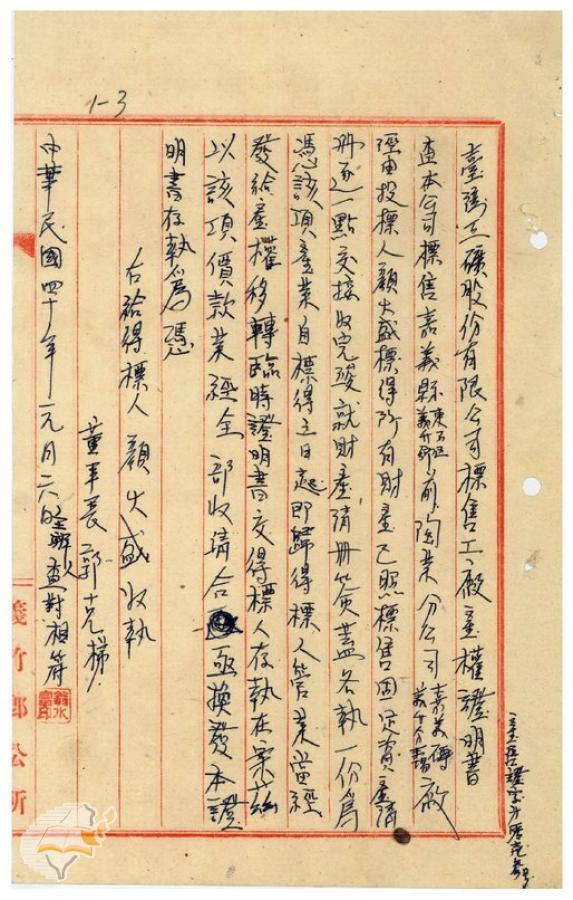 臺灣工礦股份有限公司標售工廠產權證明書
查本公司標售嘉義縣東石區義竹鄉前陶業分公司嘉義磚義竹分場廠
經由投標人顏火盛標得所有財產已照標售固定資產清
冊逐一點交接收完竣就財產清冊簽蓋各執一份為
憑該項產業自標得之日起即歸得標人管業當經
發給產權移轉臨時證明書交得標人存執在案茲
以該項價款業經全部收清合亟換發本證
明書存執為憑
右給得標人 顏火盛收執
董事長 郭
中華民國四十年元月六
查對相符
1-3
義竹鄉公所